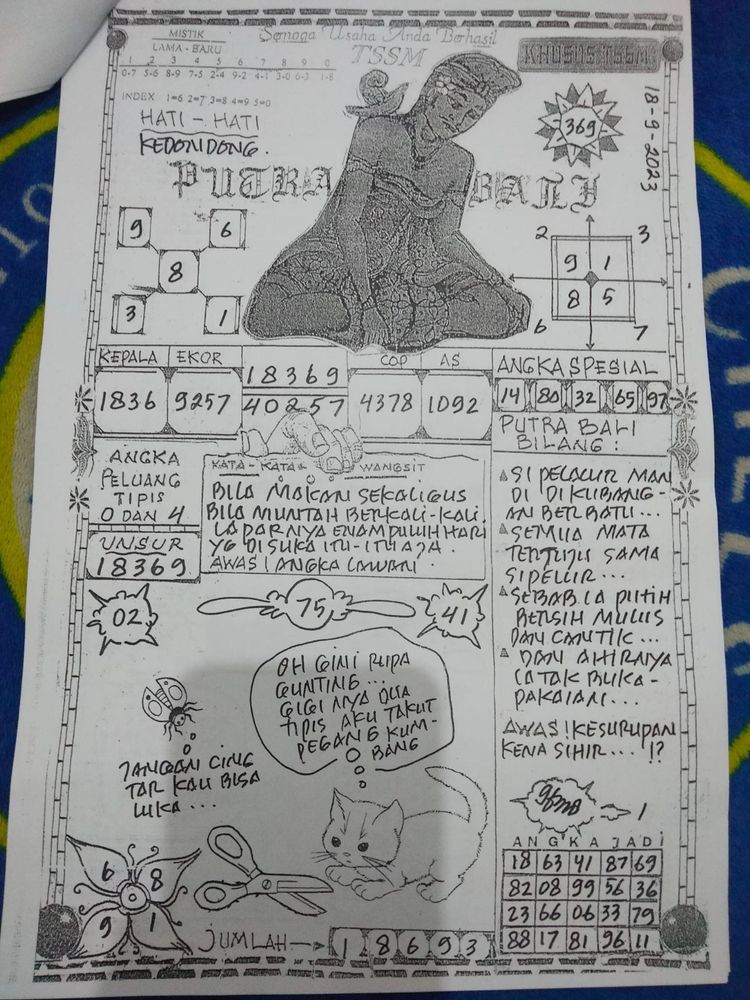 MISTIK
LAMA - BARU
1 2 3 4 5 6 7 8 9 0
0-7 5-6 8-9 7-5 2-4 9-2 4-1 3-0 6-3 1-8
INDEX 1=6 2=7 3=8 4=9 5=0
HATI - HATI
KEDONDONG.
Semoga Usaha Anda Berhasil
TSSM
KHUSUS TSSM
369
18-9-2023
PUTRA BALI
9 6
8
3 1
2 3
9 1
8 5
6 7
KEPALA EKOR COP AS
1836 9257 18369 4378 1092
40257
ANGKA SPESIAL
14 80 32 65 97
ANGKA
PELUANG
TIPIS
0 DAN 4
UNSUR
18369
KATA - KATA WANGSIT
BILA MAKAN SEKALIGUS
BILA MUNTAH BERKALI-KALI.
LAPARNYA ENAMPULUH HARI
YG DISUKA ITU-ITU AJA.
AWAS! ANGKA LAWAN.
PUTRA BALI
BILANG:
SI PELUUR MAN
DI DI KUBANG-
AN BERBATU...
SEMUA MATA
TERTUJU SAMA
SI PELUR...
SEBAB LA PUTIH
BERSIH MULUS
DAN CANTIK...
DAN AHIRNYA
CATAK BUKA-
PAKAIAN...
AWAS! KESURUPAN
KENA SIHIR... !?
02
75
41
OH GINI RUPA
GUNTING...
GIGI NYA DUA
TIPIS AKU TAKUT
PEGANG KUM-
BANG
JANGAN CING
TAR KAU BISA
LUKA...
6 8
9 1
JUMLAH → 1 8 6 9 3
1
ANGKA JADI
18 63 41 87 69
82 08 99 56 36
23 66 06 33 79
88 17 81 96 11